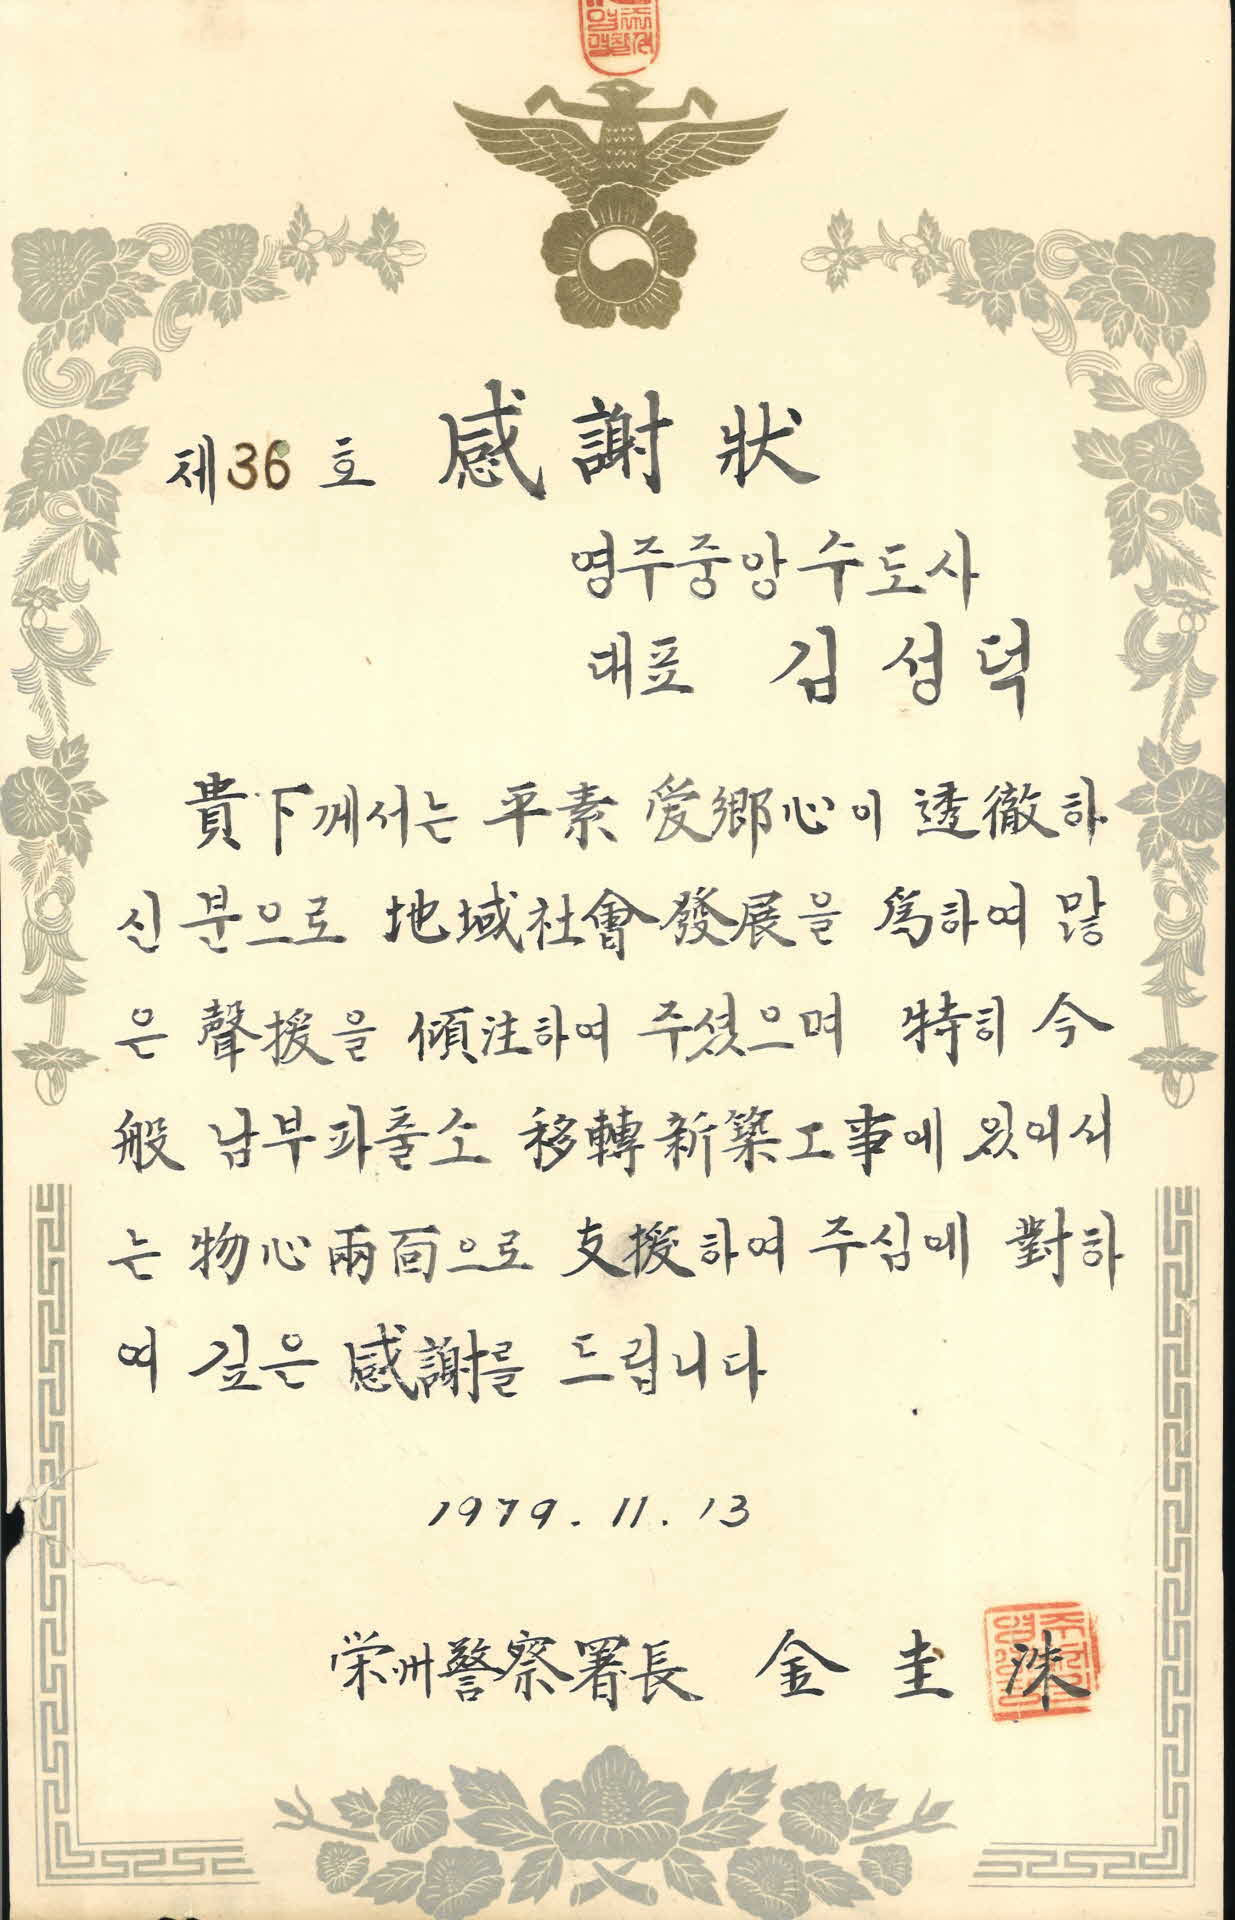 제36호 感謝狀
영주중앙수도사
대표 김성덕
貴下께서는 平素 愛鄕心이 透徹하
신분으로 地域社會 發展을 爲하여 많
은 聲援을 傾注하여 주셨으며 特히 今
般 남부파출소 移轉新築工事에 있어서
는 物心兩面으로 支援하여 주심에 對하
여 깊은 感謝를 드립니다
1979. 11. 13
栄州警察署長 金圭洙